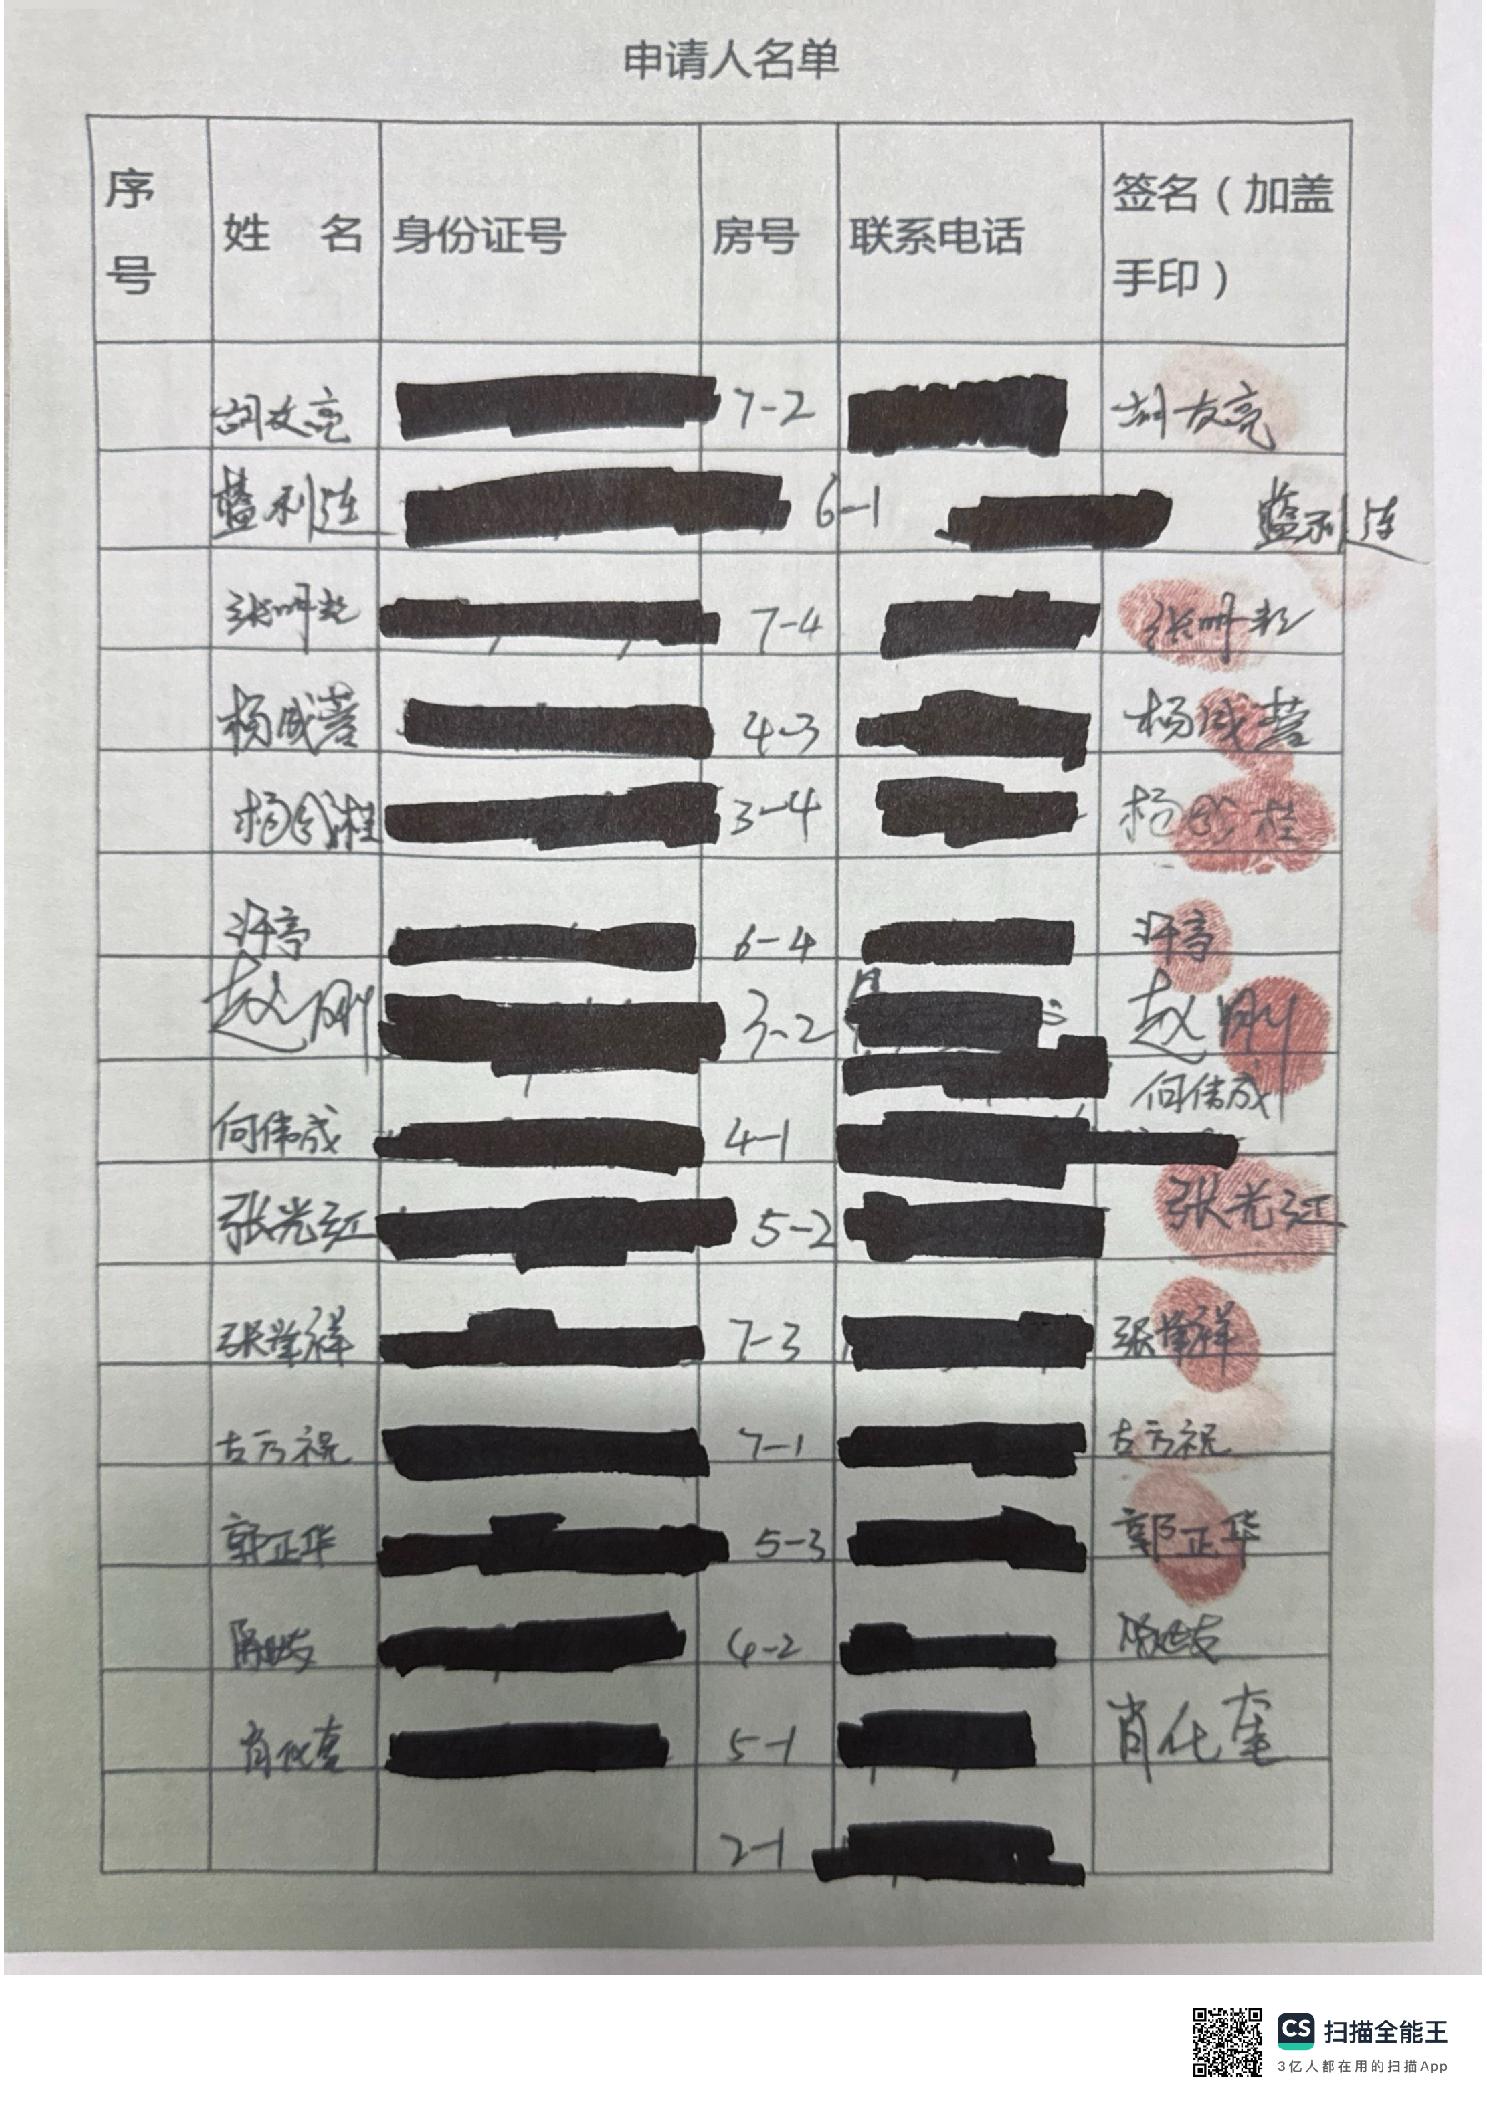 申请人名单
序号 姓 名 身份证号 房号 联系电话 签名（加盖手印）
胡友亮 7-2 胡友亮
蓝利连 6-1 蓝利连
张明 7-4 张明
杨成蓉 4-3 杨成蓉
杨成桂 3-4 杨成桂
汗亭 6-4 汗亭
赵刚 3-2 赵刚
何伟成 4-1 何伟成
张光红 5-2 张光红
张肇祥 7-3 张肇祥
古方祝 7-1 古方祝
郭正华 5-3 郭正华
4-2
肖化奎 5-1 肖化奎
2-1
CS 扫描全能王
3亿人都在用的扫描App